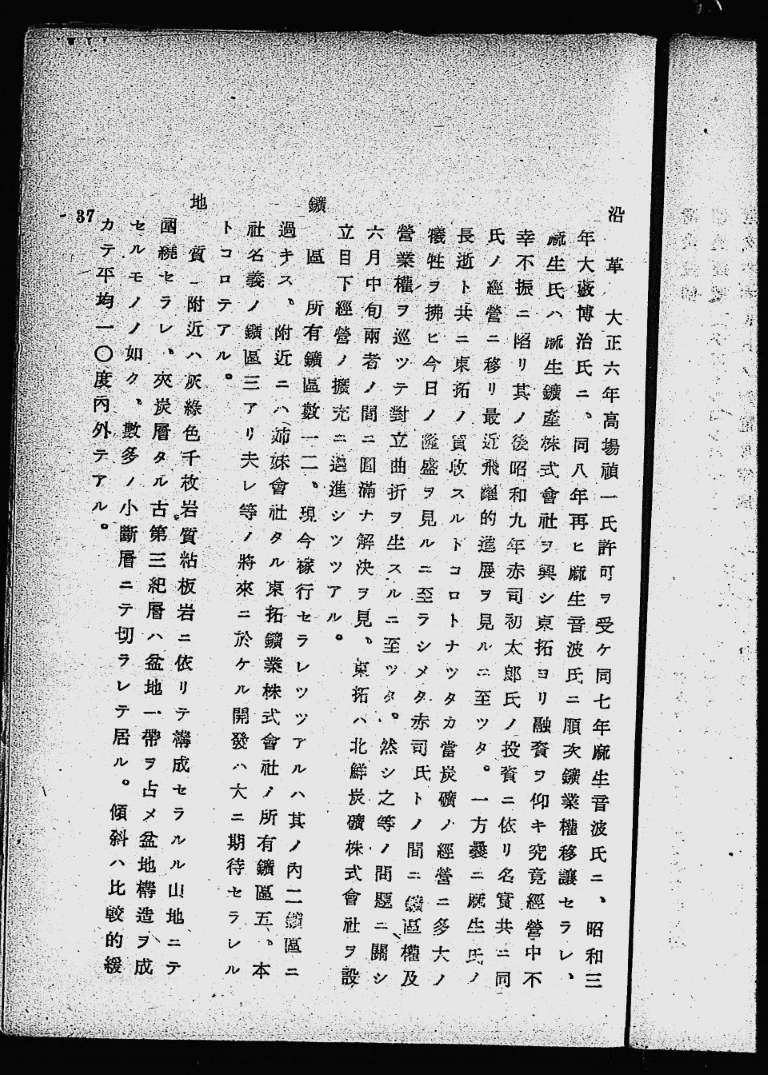 沿革　大正六年高場禎一氏許可ヲ受ケ同七年麻生音波氏ニ、昭和三
年大藪博治氏ニ、同八年再ヒ麻生音波氏ニ順次鑛業權移讓セラレ、
麻生氏ハ麻生鑛産株式會社ヲ興シ東拓ヨリ融資ヲ仰キ究竟經營中不
幸不振ニ陷リ其ノ後昭和九年赤司初太郎氏ノ投資ニ依リ名實共ニ同
氏ノ經營ニ移リ最近飛躍的進展ヲ見ルニ至ツタ。一方曩ニ麻生氏ノ
長逝ト共ニ東拓ノ買收スルトコロトナツタカ當炭礦ノ經營ニ多大ノ
犧牲ヲ拂ヒ今日ノ隆盛ヲ見ルニ至ラシメタ赤司氏トノ間ニ鑛區權及
營業權ヲ巡ツテ對立曲折ヲ生スルニ至ツタ。然シ之等ノ問題ニ關シ
六月中旬兩者ノ間ニ圓滿ナ解決ヲ見、東拓ハ北鮮炭礦株式會社ヲ設
立目下經營ノ擴充ニ邁進シツツアル。
鑛區　所有鑛區數一二、現今稼行セラレツツアルハ其ノ內二鑛區ニ
過キス、附近ニハ姉妹會社タル東拓鑛業株式會社ノ所有鑛區五、本
社名義ノ鑛區三アリ夫レ等ノ將來ニ於ケル開發ハ大ニ期待セラレル
トコロテアル。
地質　附近ハ灰綠色千枚岩質粘板岩ニ依リテ構成セラルル山地ニテ
圍繞セラレ、夾炭層タル古第三紀層ハ盆地一帶ヲ占メ盆地構造ヲ成
セルモノノ如ク、數多ノ小斷層ニテ切ラレテ居ル。傾斜ハ比較的緩
カテ平均一〇度內外テアル。
37